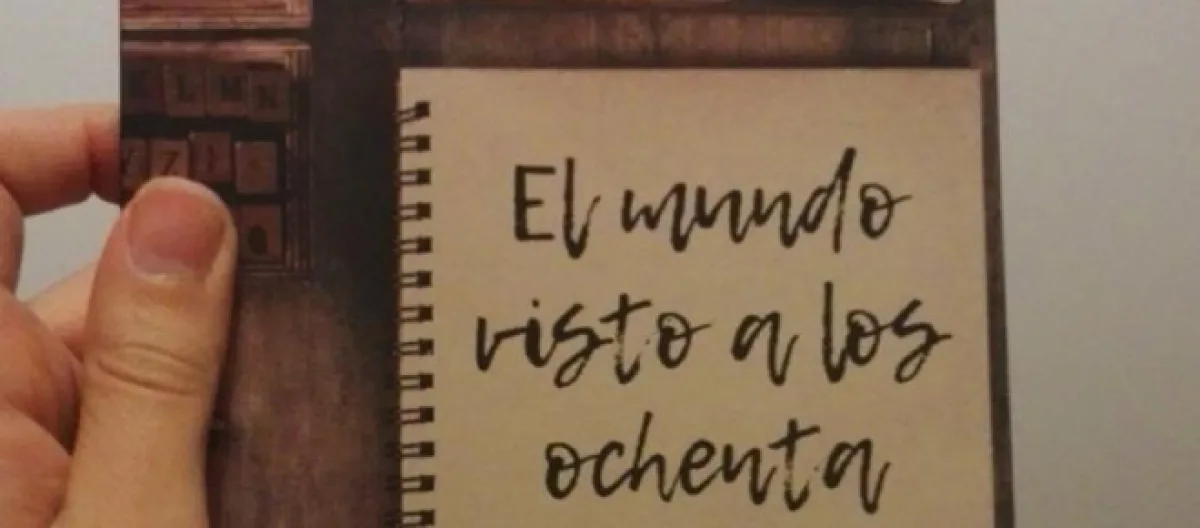 KLMN
El mundo
visto a los
ochenta